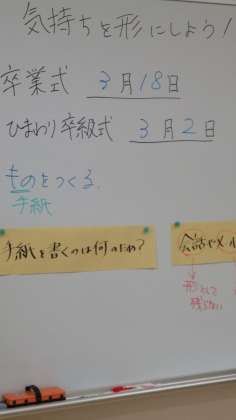 気持ちを形にしよう!
卒業式 3月18日
ひまわり卒級式 3月2日
ものをつくる。
手紙
手紙を書くのは何のため?
会話やメ
形として
残らない